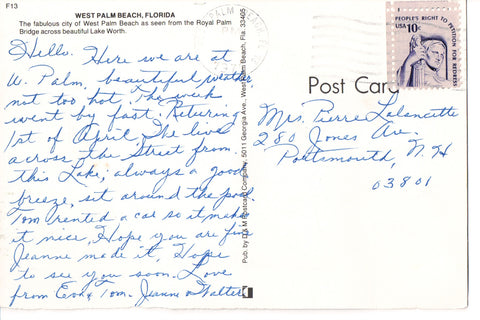 F13
WEST PALM BEACH, FLORIDA
The fabulous city of West Palm Beach as seen from the Royal Palm
Bridge across beautiful Lake Worth.
Hello. Here we are at
W. Palm, beautiful weather
not too hot. The week
went by fast. Returing
1st of April. She lives
across the Street from
this Lake, always a good
breeze, sit around the pool.
Tom rented a car so it makes
it nice, Hope you are fine
Jeanne made it, Hope
to see you soon. Love
from Eva & Tom. Jeanne & Walter
Pub. by D & M Postcard Company, 5011 Georgia Ave., West Palm Beach, Fla. 33405
PEOPLE'S RIGHT TO PETITION FOR REDRESS
USA
10c
Post Card
Mrs. Pierre Lalancette
280 Jones Ave.
Portsmouth, N. H
03801